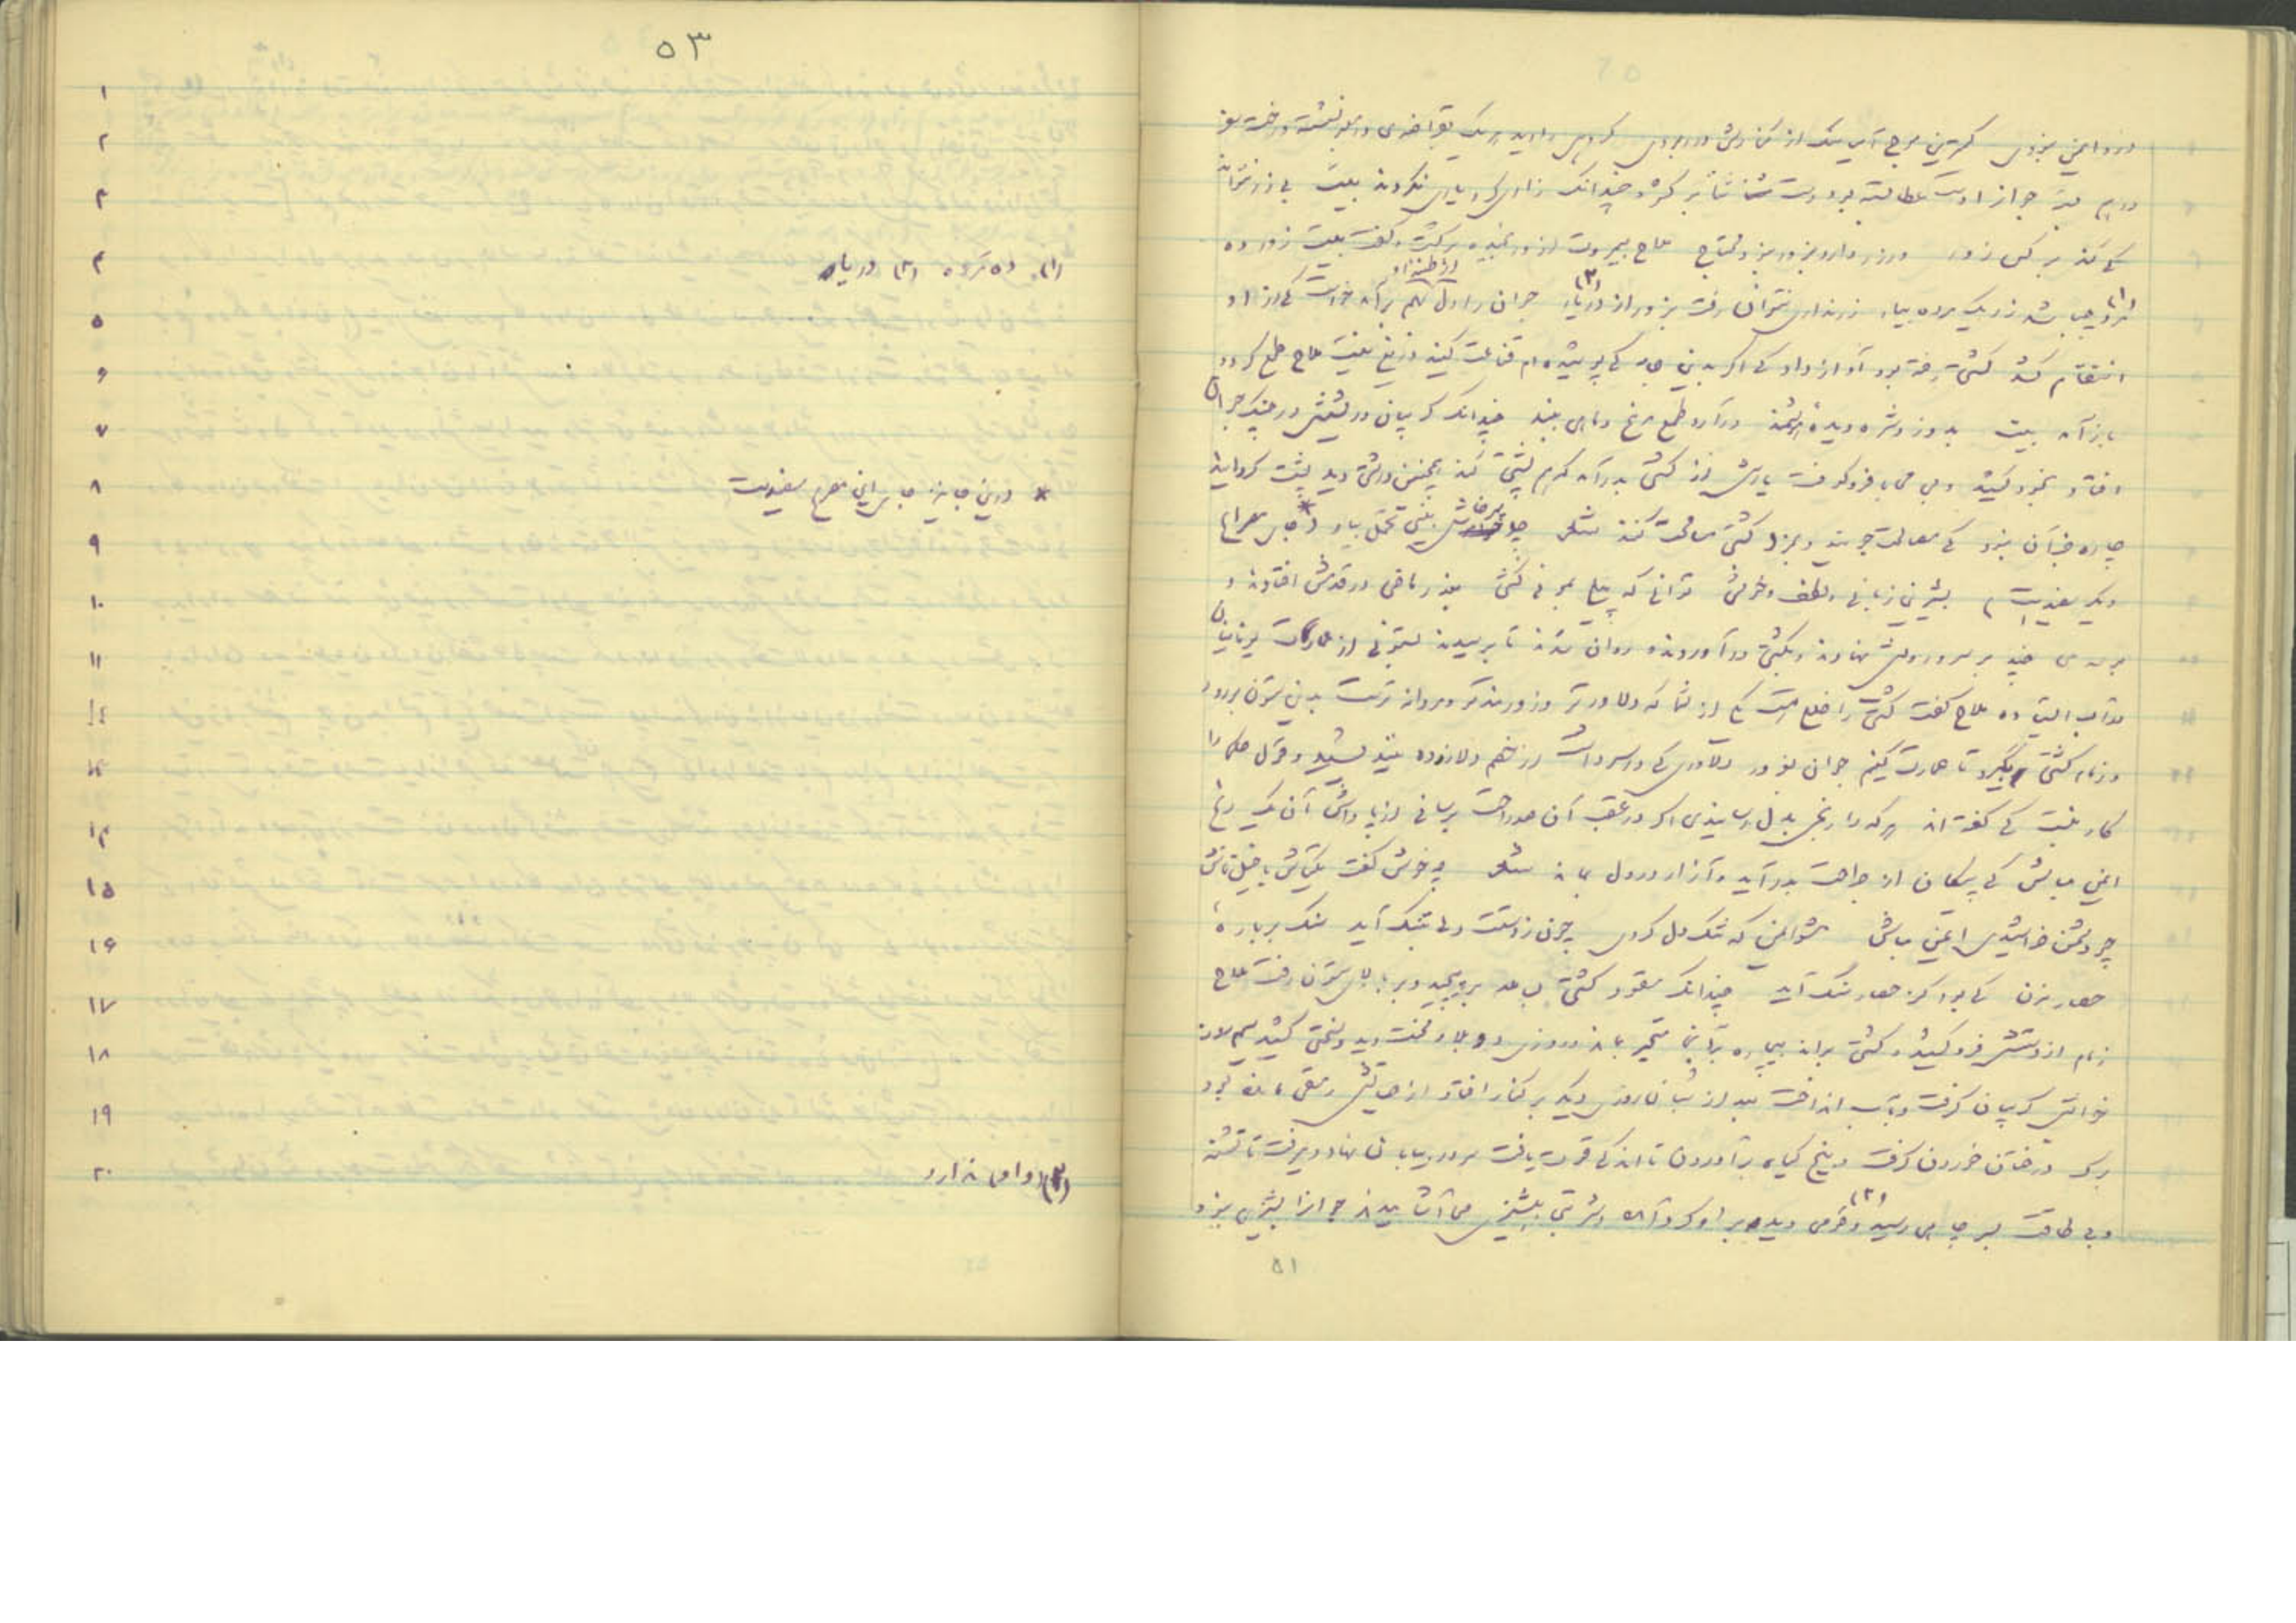 درو ایمن نبودی کمترین موج آسیاسنگ از کنارش در ربودی گروهی را دید هر یک بقراضه‌ی در معبر نشسته و رخت سفر
دست عطا بسته بود زبان ثنا بر گشود چندانک زاری کرد یاری نکردند بیت بی زر نتوانی
که کند بر کس زور ور زر داری بزور نئی محتاج ملاح بی مروت ازو بخنده برگشت و گفت بیت زور ده
مرده چه باشد زر یک مرده بیار زر نداری نتوان رفت بزور از دریا جوانرا دل از طعنه او بهم برآمد خواست کی ازو
انتقام کشد کشتی رفته بود آواز داد کی اگر بدین جامه کی پوشیده‌ام قناعت کنی دریغ نیست ملاح طمع کرد و
باز آمد بیت بدوزد شره دیده هوشمند درآرد طمع مرغ و ماهی ببند چندانک گریبان و ریشش در چنگ جوان
افتاد بخود کشید و بی محابا فرو کوفت یارش از کشتی بدر آمد کی پشتی کند همچنین درشتی دید پشت گردانید
چاره جز آن نبود کی مصالحت جویند و بمزد کشتی مسامحت کنند شعر چو پرخاش بینی تحمل بیار (* جای مصراع
دیگر سفیدست) بشیرین زبانی و لطف و خوشی توانی که پیلی بموئی کشی بعذر ماضی در قدمش افتادند و
بوسه‌ی چند بر سر و رویش نهادند و بکشتی در آوردند و روان شدند تا برسیدند بستونی از عمارت یونان
در آب ایستاده ملاح گفت کشتی را خللی هست یکی از شما که دلاورتر و زورمندتر و مردانه‌ترست بدین ستون برود
و زمام کشتی بگیرد تا عمارت کنیم جوان بغرور دلاوری کی در سر داشت از خصم دل آزرده نیندیشید و قول حکما را
کار نبست کی گفته‌اند هر که را رنجی بدل رسانیدی اگر در عقب آن صد راحت برسانی از پاداش آن یک رنج
ایمن مباش کی پیکان از جراحت بدر آید و آزار در دل بماند شعر چه خوش گفت یکتاش با خیل‌تاش
چو دشمن خراشیدی ایمن مباش مشو ایمن که تنگ دل گردی چون ز دستت دلی بتنگ آید سنگ بر باره
حصار مزن کی بود کز حصار سنگ آید چندانک مقود کشتی بساعد بر پیچید و بر بالای ستون رفت ملاح
زمام از دستش فرو گسیخت و کشتی براند بیچاره برآن متحیر بماند روزی دو بلا و محنت دید و سختی کشید سیم روز
خوابش گریبان گرفت و بآب انداخت بعد از شبان روزی دیگر بر کنار افتاد از حیاتش رمقی مانده بود
برگ درختان خوردن گرفت و بیخ گیاه برآوردن تا اندکی قوت یافت سر در بیابان نهاد و میرفت تا تشنه
و بی طاقت بسر چاهی رسید (۳) وقومی دید برو گرد آمده و شربتی پشیزی می‌آشامیدند جوانرا پشیزی نبود
۵۱
۵۳
۱
۲
۳
۴ (۱) ده مرده (۲) دریا
۵
۶
۷
۸ * درین جا نیز جای این مصرع سفیدست
۹
۱۰
۱۱
۱۲
۱۳
۱۴
۱۵
۱۶
۱۷
۱۸
۱۹
۲۰ (۳) واو ندارد